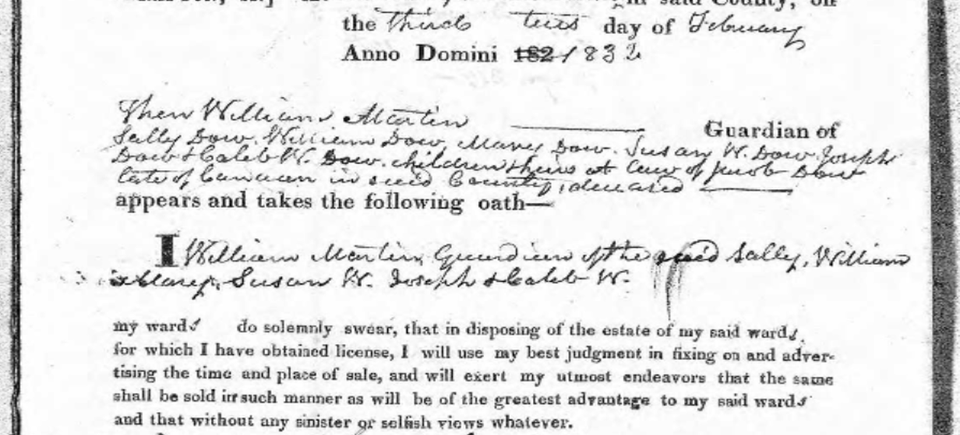 said County, on
the third tues day of February
Anno Domini 182 1832
Then William Martin Guardian of
Sally Dow, William Dow, Mary Dow, Susan W. Dow, Joseph
Dow & Caleb W. Dow, children & heirs at law of Jacob Dow
late of Canaan in said County, deceased
appears and takes the following oath—
I William Martin, Guardian of the said Sally, William
Mary, Susan W. Joseph & Caleb W.
my wards do solemnly swear, that in disposing of the estate of my said wards,
for which I have obtained license, I will use my best judgment in fixing on and adver-
tising the time and place of sale, and will exert my utmost endeavors that the same
shall be sold in such manner as will be of the greatest advantage to my said wards
and that without any sinister or selfish views whatever.